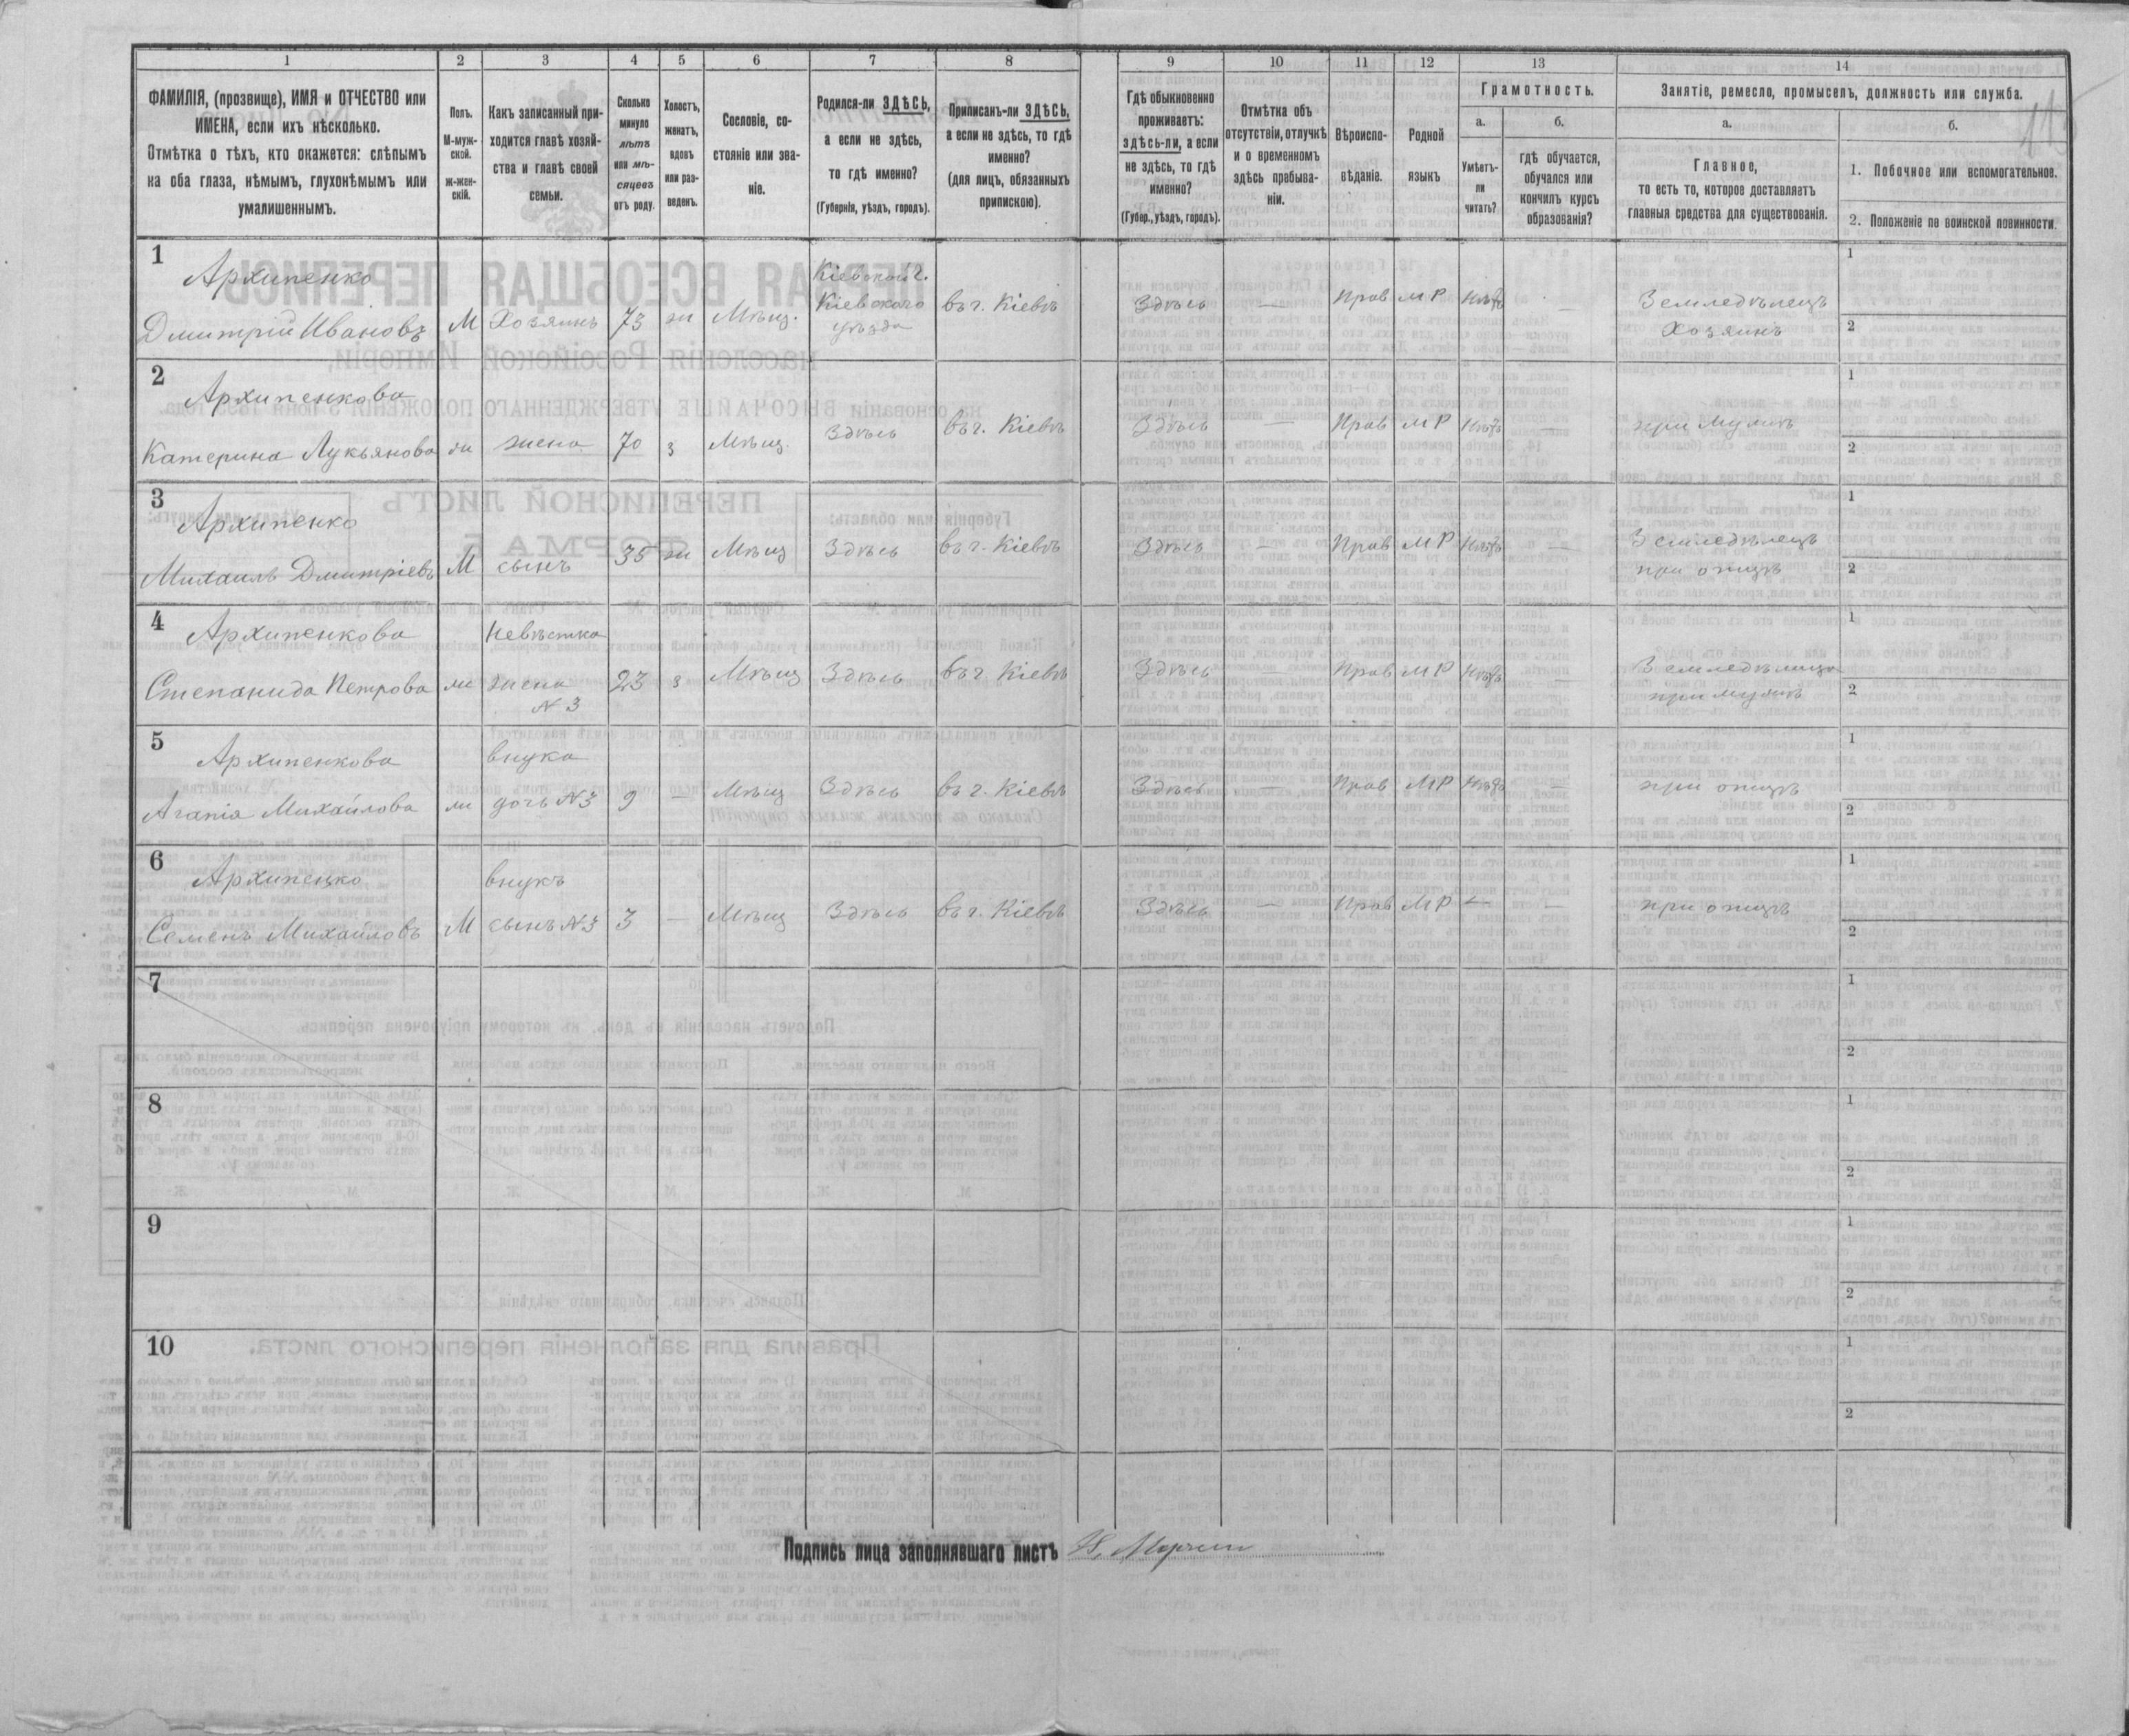 1 2 3 4 5 6 7 8 9 10 11 12 13 14
ФАМИЛІЯ, (прозвище), ИМЯ и ОТЧЕСТВО или
ИМЕНА, если ихъ нѣсколько.
Отмѣтка о тѣхъ, кто окажется: слѣпымъ
на оба глаза, нѣмымъ, глухонѣмымъ или
умалишеннымъ.
Полъ.
М-муж-
ской.
ж-жен-
скій.
Какъ записанный при-
ходится главѣ хозяй-
ства и главѣ своей
семьи.
Сколько
минуло
лѣтъ
или мѣ-
сяцевъ
отъ роду.
Холостъ,
женатъ,
вдовъ
или раз-
веденъ.
Сословіе, со-
стояніе или зва-
ніе.
Родился-ли ЗДѢСЬ,
а если не здѣсь,
то гдѣ именно?
(Губернія, уѣздъ, городъ).
Приписанъ-ли ЗДѢСЬ,
а если не здѣсь, то гдѣ
именно?
(для лицъ, обязанныхъ
припискою).
Гдѣ обыкновенно
проживаетъ:
здѣсь-ли, а если
не здѣсь, то гдѣ
именно?
(Губер., уѣздъ, городъ).
Отмѣтка объ
отсутствіи, отлучкѣ
и о временномъ
здѣсь пребыва-
ніи.
Вѣроиспо-
вѣданіе.
Родной
языкъ
Грамотность.
а.
Умѣетъ-
ли
читать?
б.
гдѣ обучается,
обучался или
кончилъ курсъ
образованія?
Занятіе, ремесло, промыселъ, должность или служба.
а.
Главное,
то есть то, которое доставляетъ
главныя средства для существованія.
б.
1. Побочное или вспомогательное.
2. Положеніе по воинской повинности.
1
Архипенко Кіевской г. 1
Дмитрій Ивановъ М Хозяинъ 73 ж Мѣщ. Кіевского въ г. Кіевѣ Здѣсь — Прав МР Нѣтъ — Земледѣлецъ
уѣзда Хозяинъ 2
2
Архипенкова 1
Катерина Лукьянова ж жена 70 з Мѣщ. Здѣсь въ г. Кіевѣ Здѣсь — Прав МР Нѣтъ — при мужѣ
2
3
Архипенко 1
Михаилъ Дмитріевъ М сынъ 35 ж Мѣщ Здѣсь въ г. Кіевѣ Здѣсь — Прав МР Нѣтъ — Земледѣлецъ
при отцѣ 2
4
Архипенкова Невѣстка 1
Степанида Петрова ж жена 23 з Мѣщ Здѣсь въ г Кіевѣ Здѣсь — Прав МР Нѣтъ — Земледѣлица
N 3 при мужѣ 2
5
Архипенкова внука 1
Агапія Михайлова ж дочь N3 9 — Мѣщ Здѣсь въ г. Кіевѣ Здѣсь — Прав МР Нѣтъ — при отцѣ
2
6
Архипенко внукъ 1
Семенъ Михайловъ М сынъ N3 3 — Мѣщ Здѣсь въ г. Кіевѣ Здѣсь — Прав МР — — при отцѣ
2
7 1
2
8 1
2
9 1
2
10 1
2
Подпись лица заполнявшаго листъ